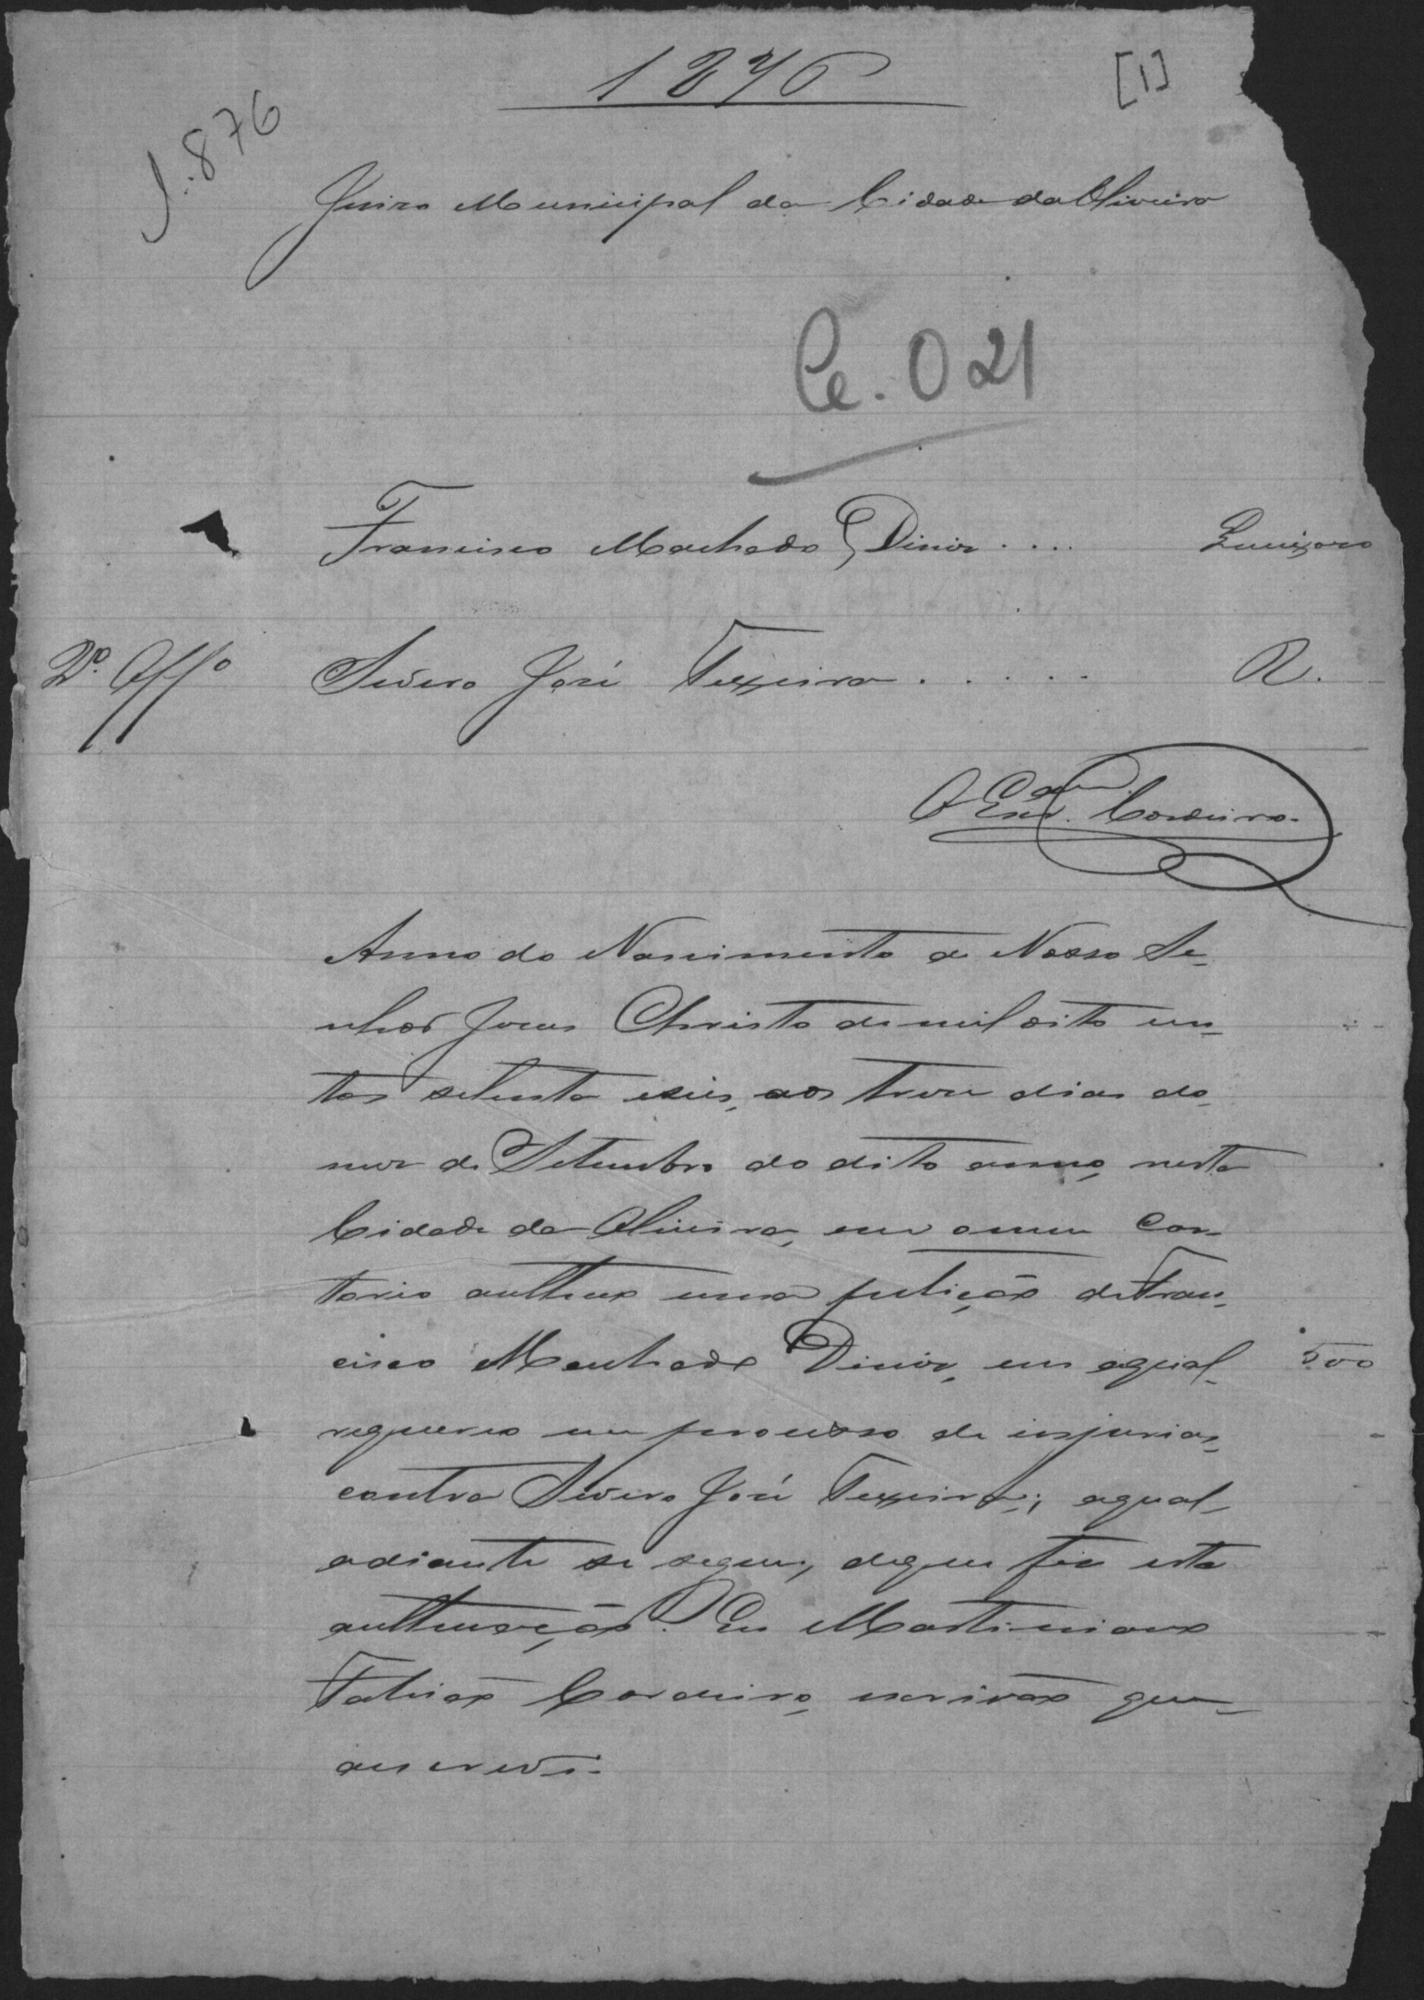 1876
[1]
1.876
Juizo Municipal da Cidade da Oliveira
Ce. 021
Francisco Machado Diniz . . . .
2º. Offº
Severo José Teixeira . . . . . R.
O Escam. Cordeiro.
Anno do Nascimento de Nosso Se-
nhor Jesus Christo de mil oito cen-
tos setenta e seis, aos treze dias do
mez de Setembro do dito anno, nesta
Cidade da Oliveira, em o meu Car-
torio authuo uma petição de Fran-
cisco Machado Diniz, em a qual
500
requereo um processo de injurias,
contra Severo José Teixeira; a qual
adiante se segue, de que fiz esta
authuação. Eu Martiniano
Cordeiro, escrivão que
a escrevi.